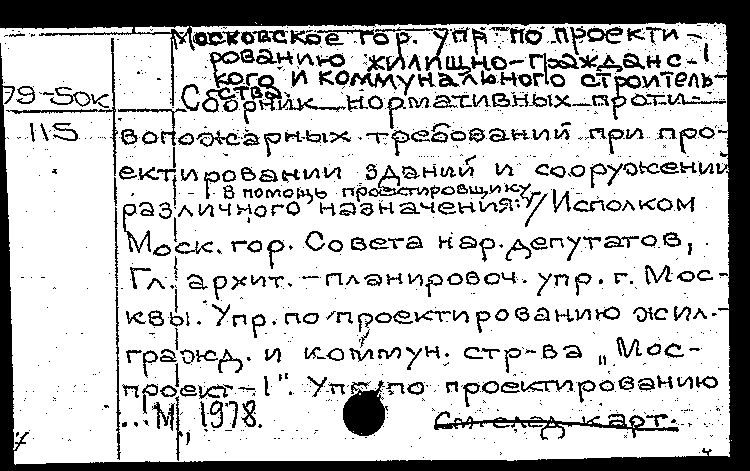 Московское гор. упр. по проекти-
рованию жилищно-гражданс-
кого и коммунального строитель-
ства.
79-50к Сборник нормативных проти-
115 вопожарных требований при про-
ектировании зданий и сооружений
В помощь проектировщику
различного назначения: / Исполком
Моск. гор. Совета нар. депутатов,
Гл. архит.-планировоч. упр. г. Мос-
квы. Упр. по проектированию жил.-
гражд. и коммун. стр-ва „Мос-
проект-1". Упр. по проектированию
...М., 1978. См. след. карт.